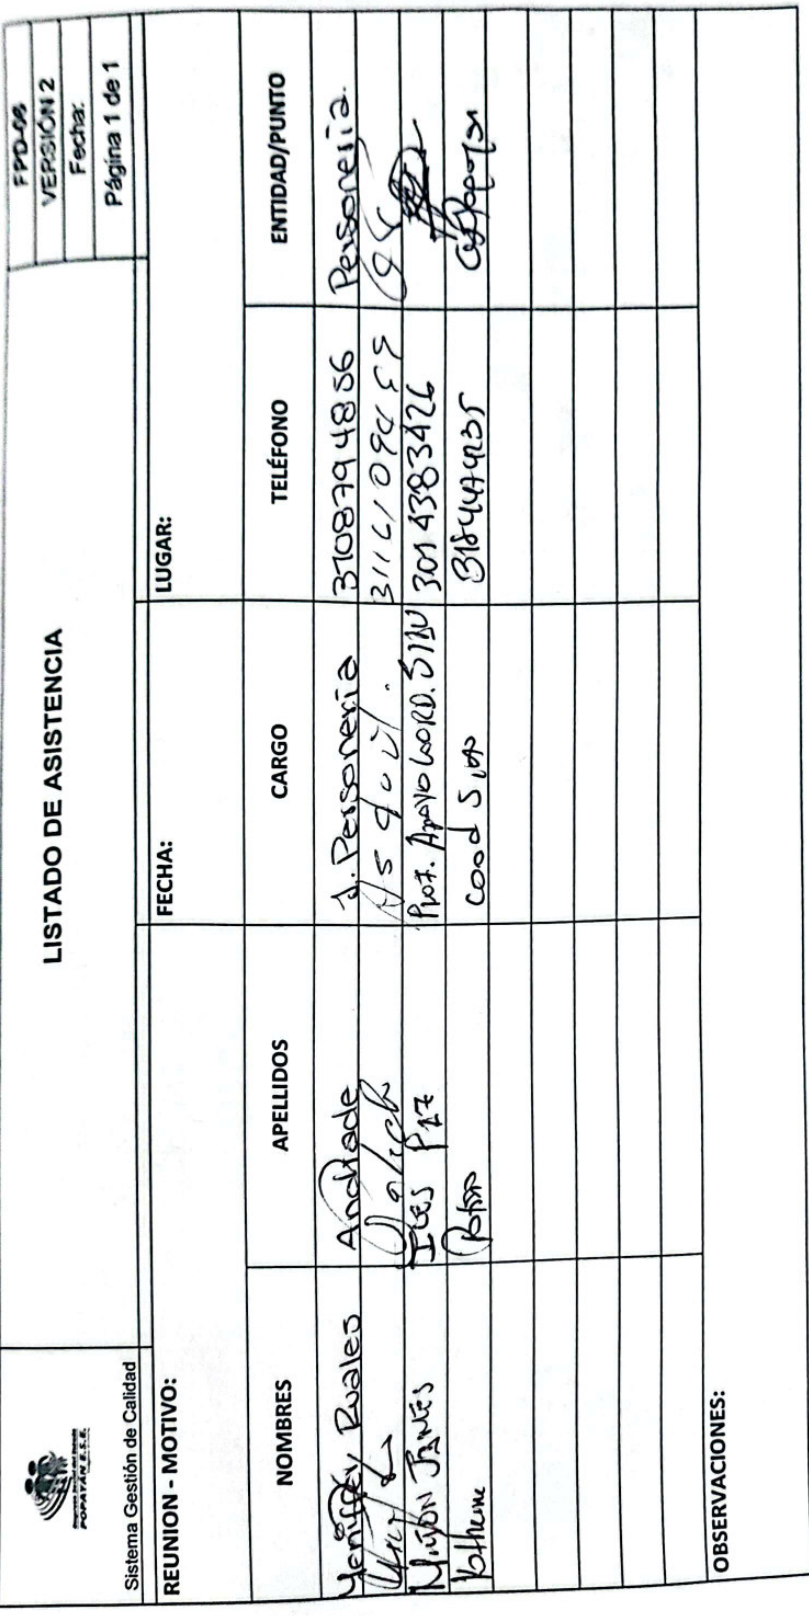 POPAYÁN E.S.E.
Sistema Gestión de Calidad
LISTADO DE ASISTENCIA
FPD-06
VERSIÓN 2
Fecha:
Página 1 de 1
REUNION - MOTIVO:
FECHA:
LUGAR:
NOMBRES APELLIDOS CARGO TELÉFONO ENTIDAD/PUNTO
Yeniffer Ruales Andrade J. Personeria 3108794856 Personeria.
Ines Paz Prof. Apoyo COORD. 301 4383426
Katherine Patiño Coord 3184474235
OBSERVACIONES: